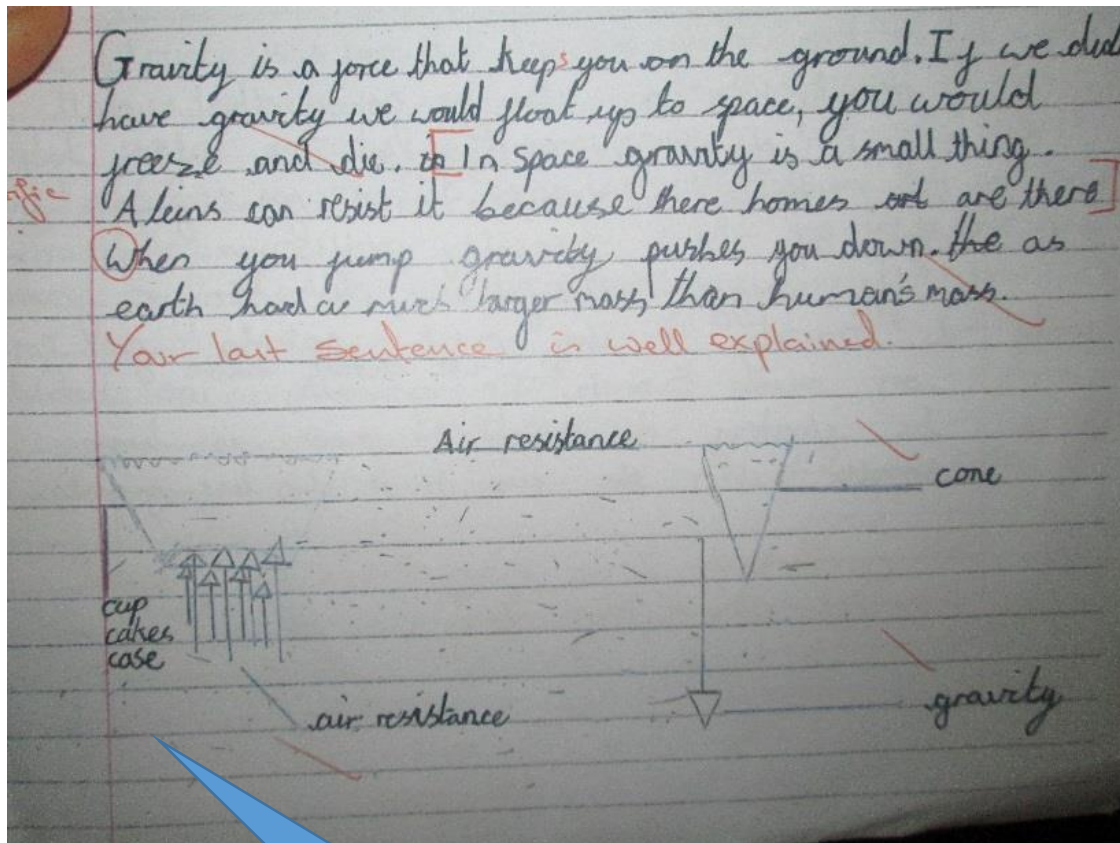 Gravity is a force that keeps you on the ground. If we did
have gravity we would float up to space, you would
freeze and die. in In space gravity is a small thing.
Aleins can resist it because there homes art are there
When you jump gravity pushes you down. the as
earth had a much larger mass than human's mass.
Your last sentence is well explained.
Air resistance
cone
cup
cakes
case
air resistance
gravity